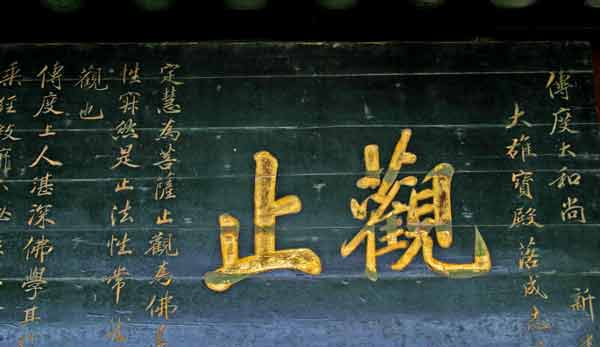 傳度大和尚 新
大雄寶殿落成志
觀止
定慧為菩薩止觀為佛
性寂然是止法性常
觀也
傳度上人湛深佛學
乘經教